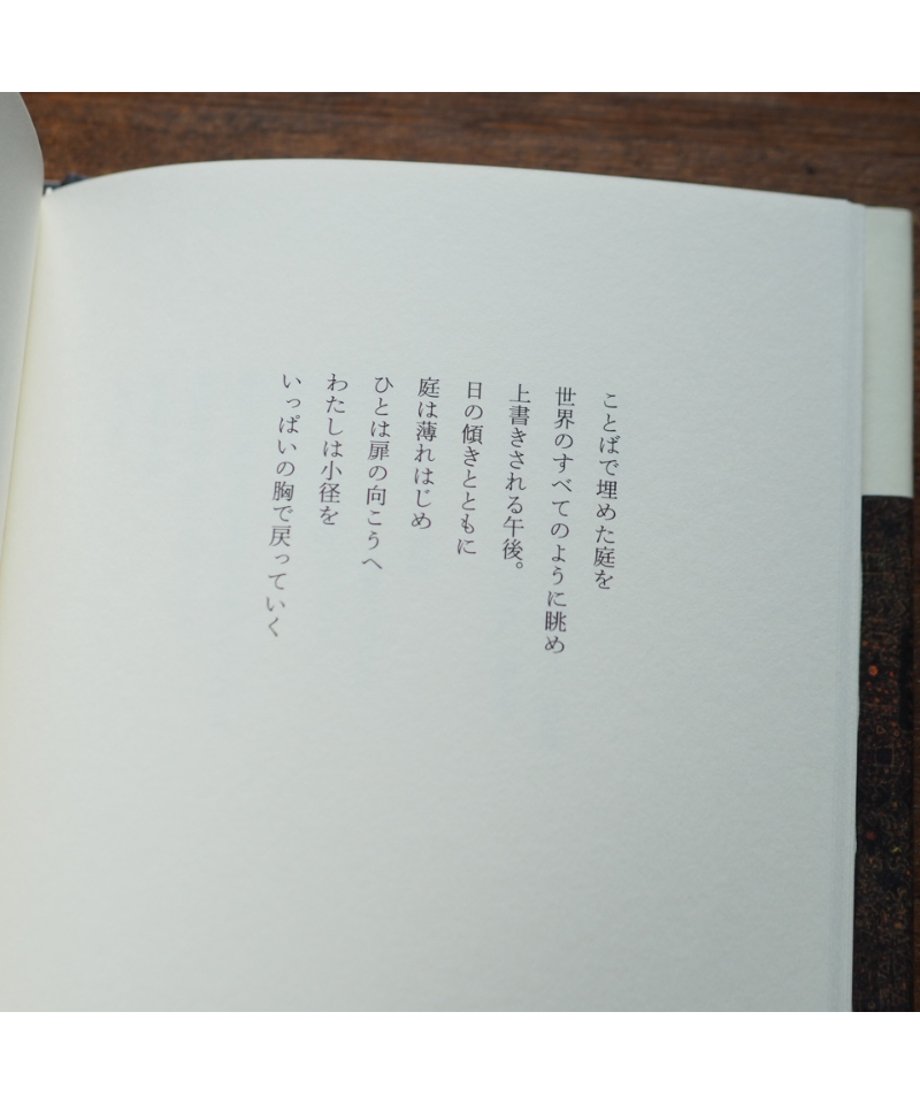 ことばで埋めた庭を
世界のすべてのように眺め
上書きされる午後。
日の傾きとともに
庭は薄れはじめ
ひとは扉の向こうへ
わたしは小径を
いっぱいの胸で戻っていく